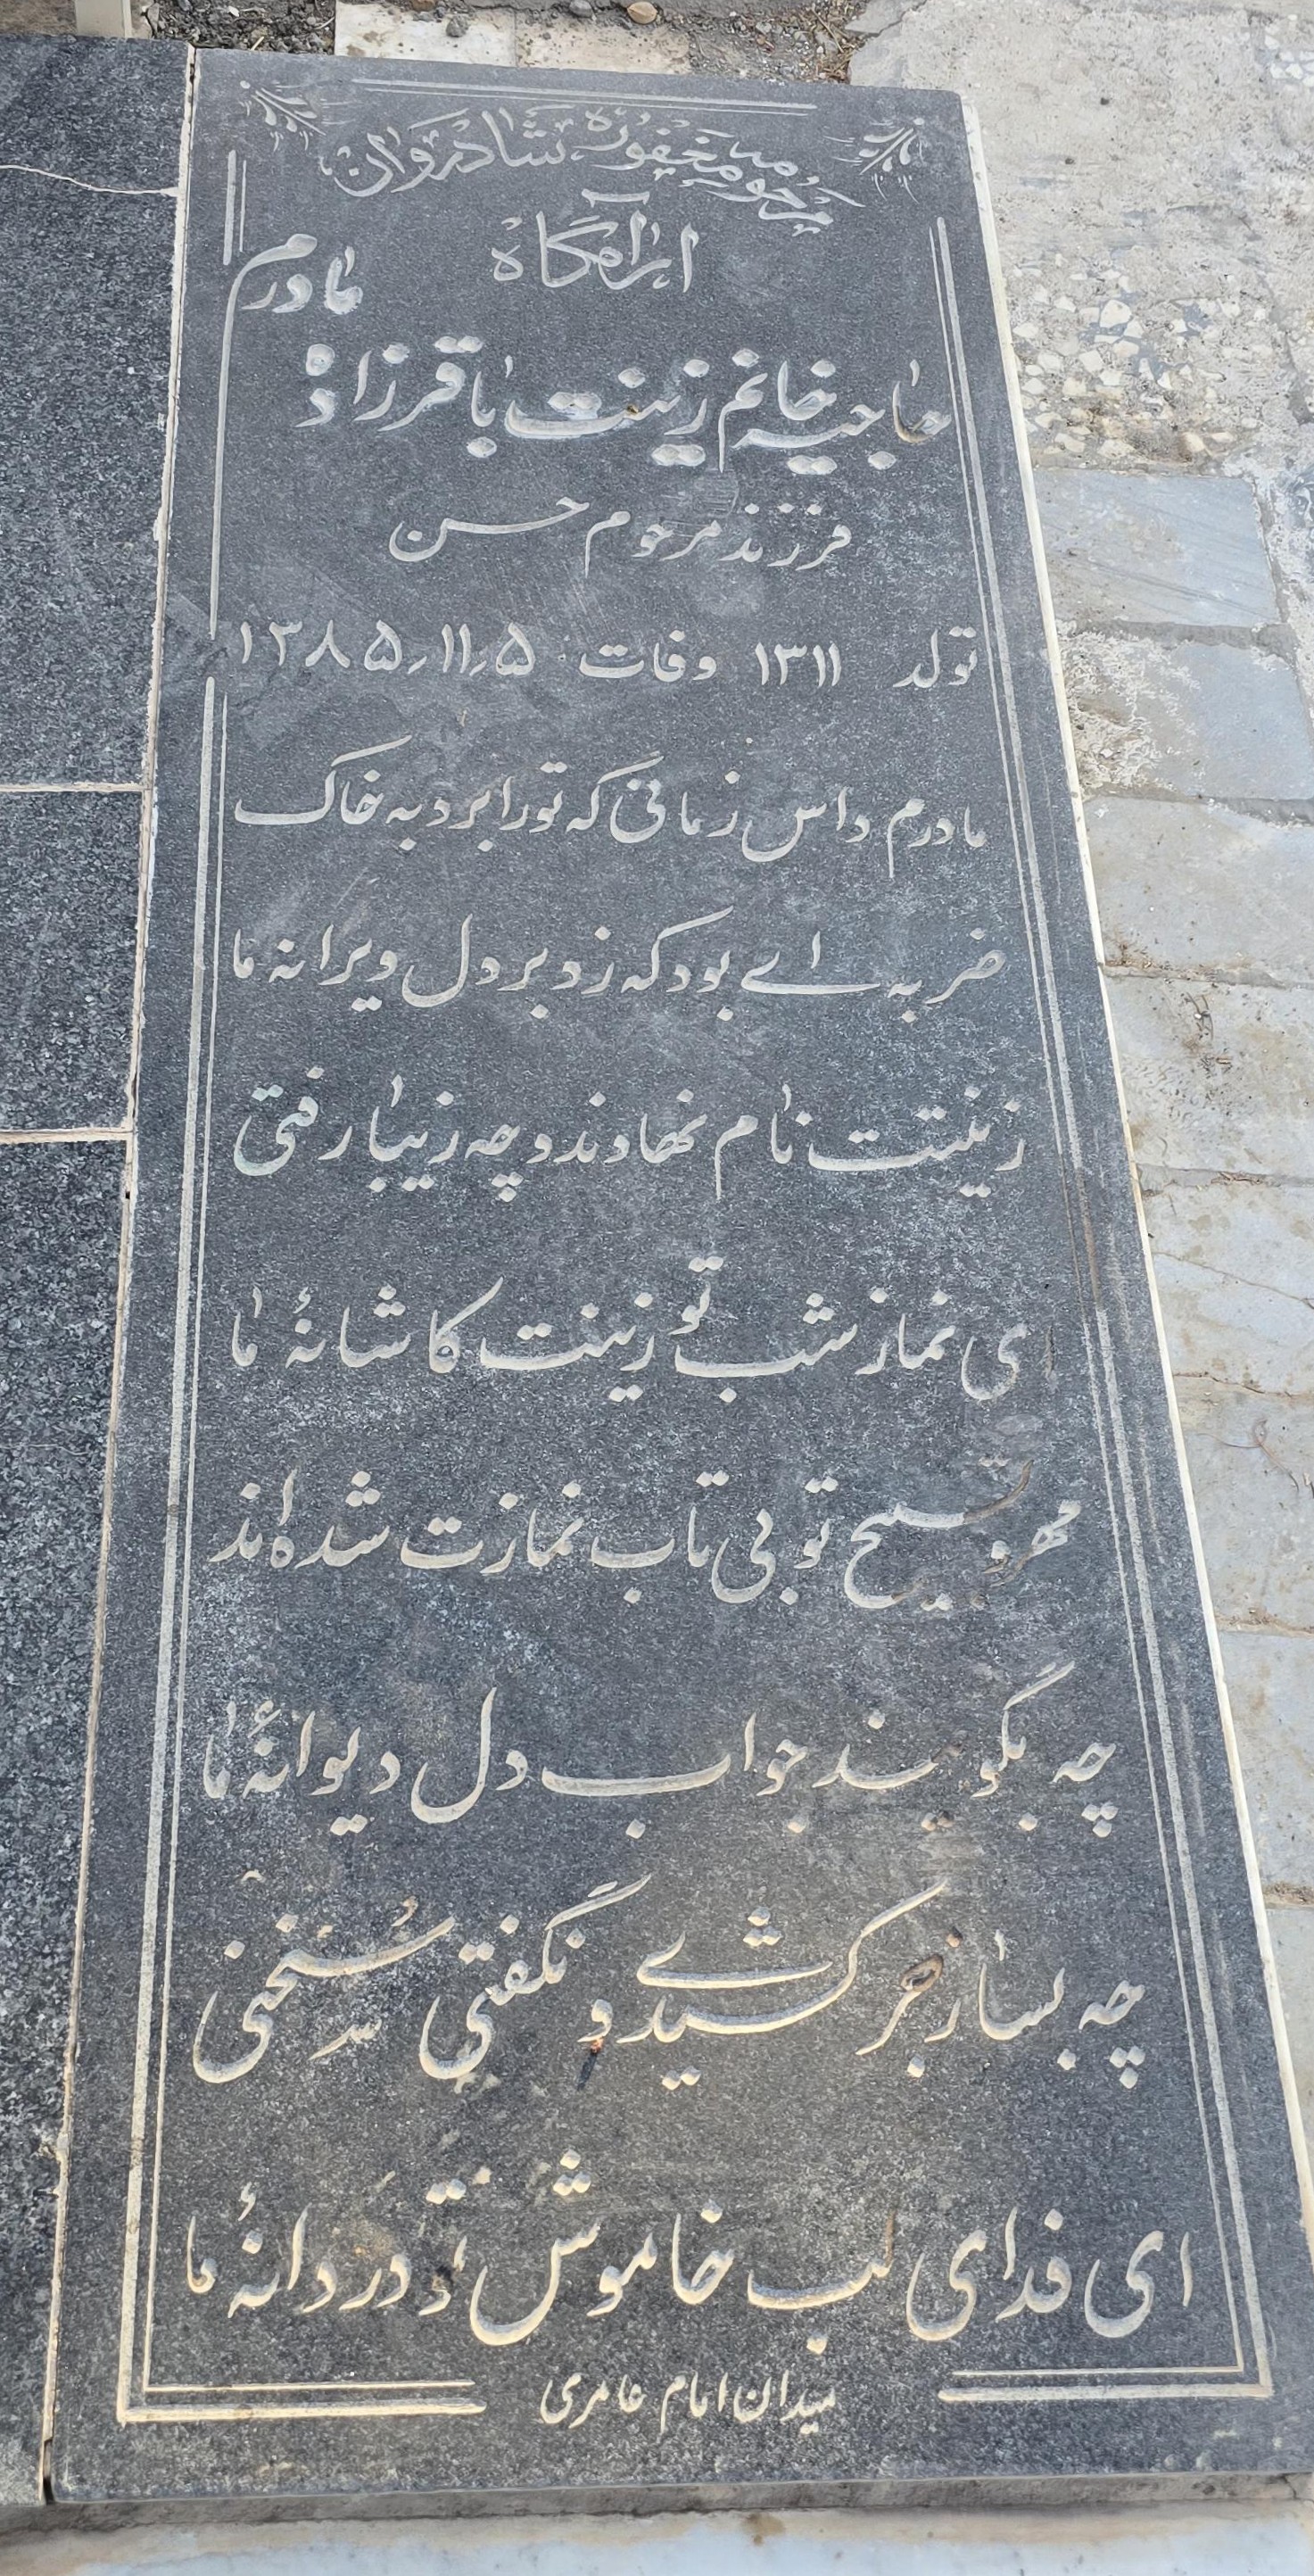 مرحومه مغفوره شادروان
آرامگاه
مادرم
حاجیه خانم زینت باقرزاده
فرزند مرحوم حسن
تولد ۱۳۱۱ وفات ۱۳۸۵٫۱۱٫۵
مادرم داس زمانی که تو را برد به خاک
ضربه اے بود که زد بر دل ویرانه ما
زینت نام نهادند و چه زیبا رفتی
ای نماز شب تو زینت کاشانهٔ ما
مهر و تسبیح تو بی تاب نمازت شده اند
چه بگویند جواب دل دیوانهٔ ما
چه بسا زجر کشیدے و نگفتی سخنی
ای فدای لب خاموش تو دردانهٔ ما
میدان امام عامری